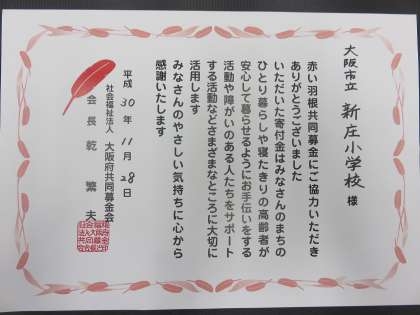 大阪市立 新庄小学校 様
赤い羽根共同募金にご協力いただき
ありがとうございました
いただいた寄付金はみなさんのまちの
ひとり暮らしや寝たきりの高齢者が
安心して暮らせるようにお手伝いをする
活動や障がいのある人たちをサポート
する活動などさまざまなところに大切に
活用します
みなさんのやさしい気持ちに心から
感謝いたします
平成30年11月28日
社会福祉法人 大阪府共同募金会
会長 乾 繁夫